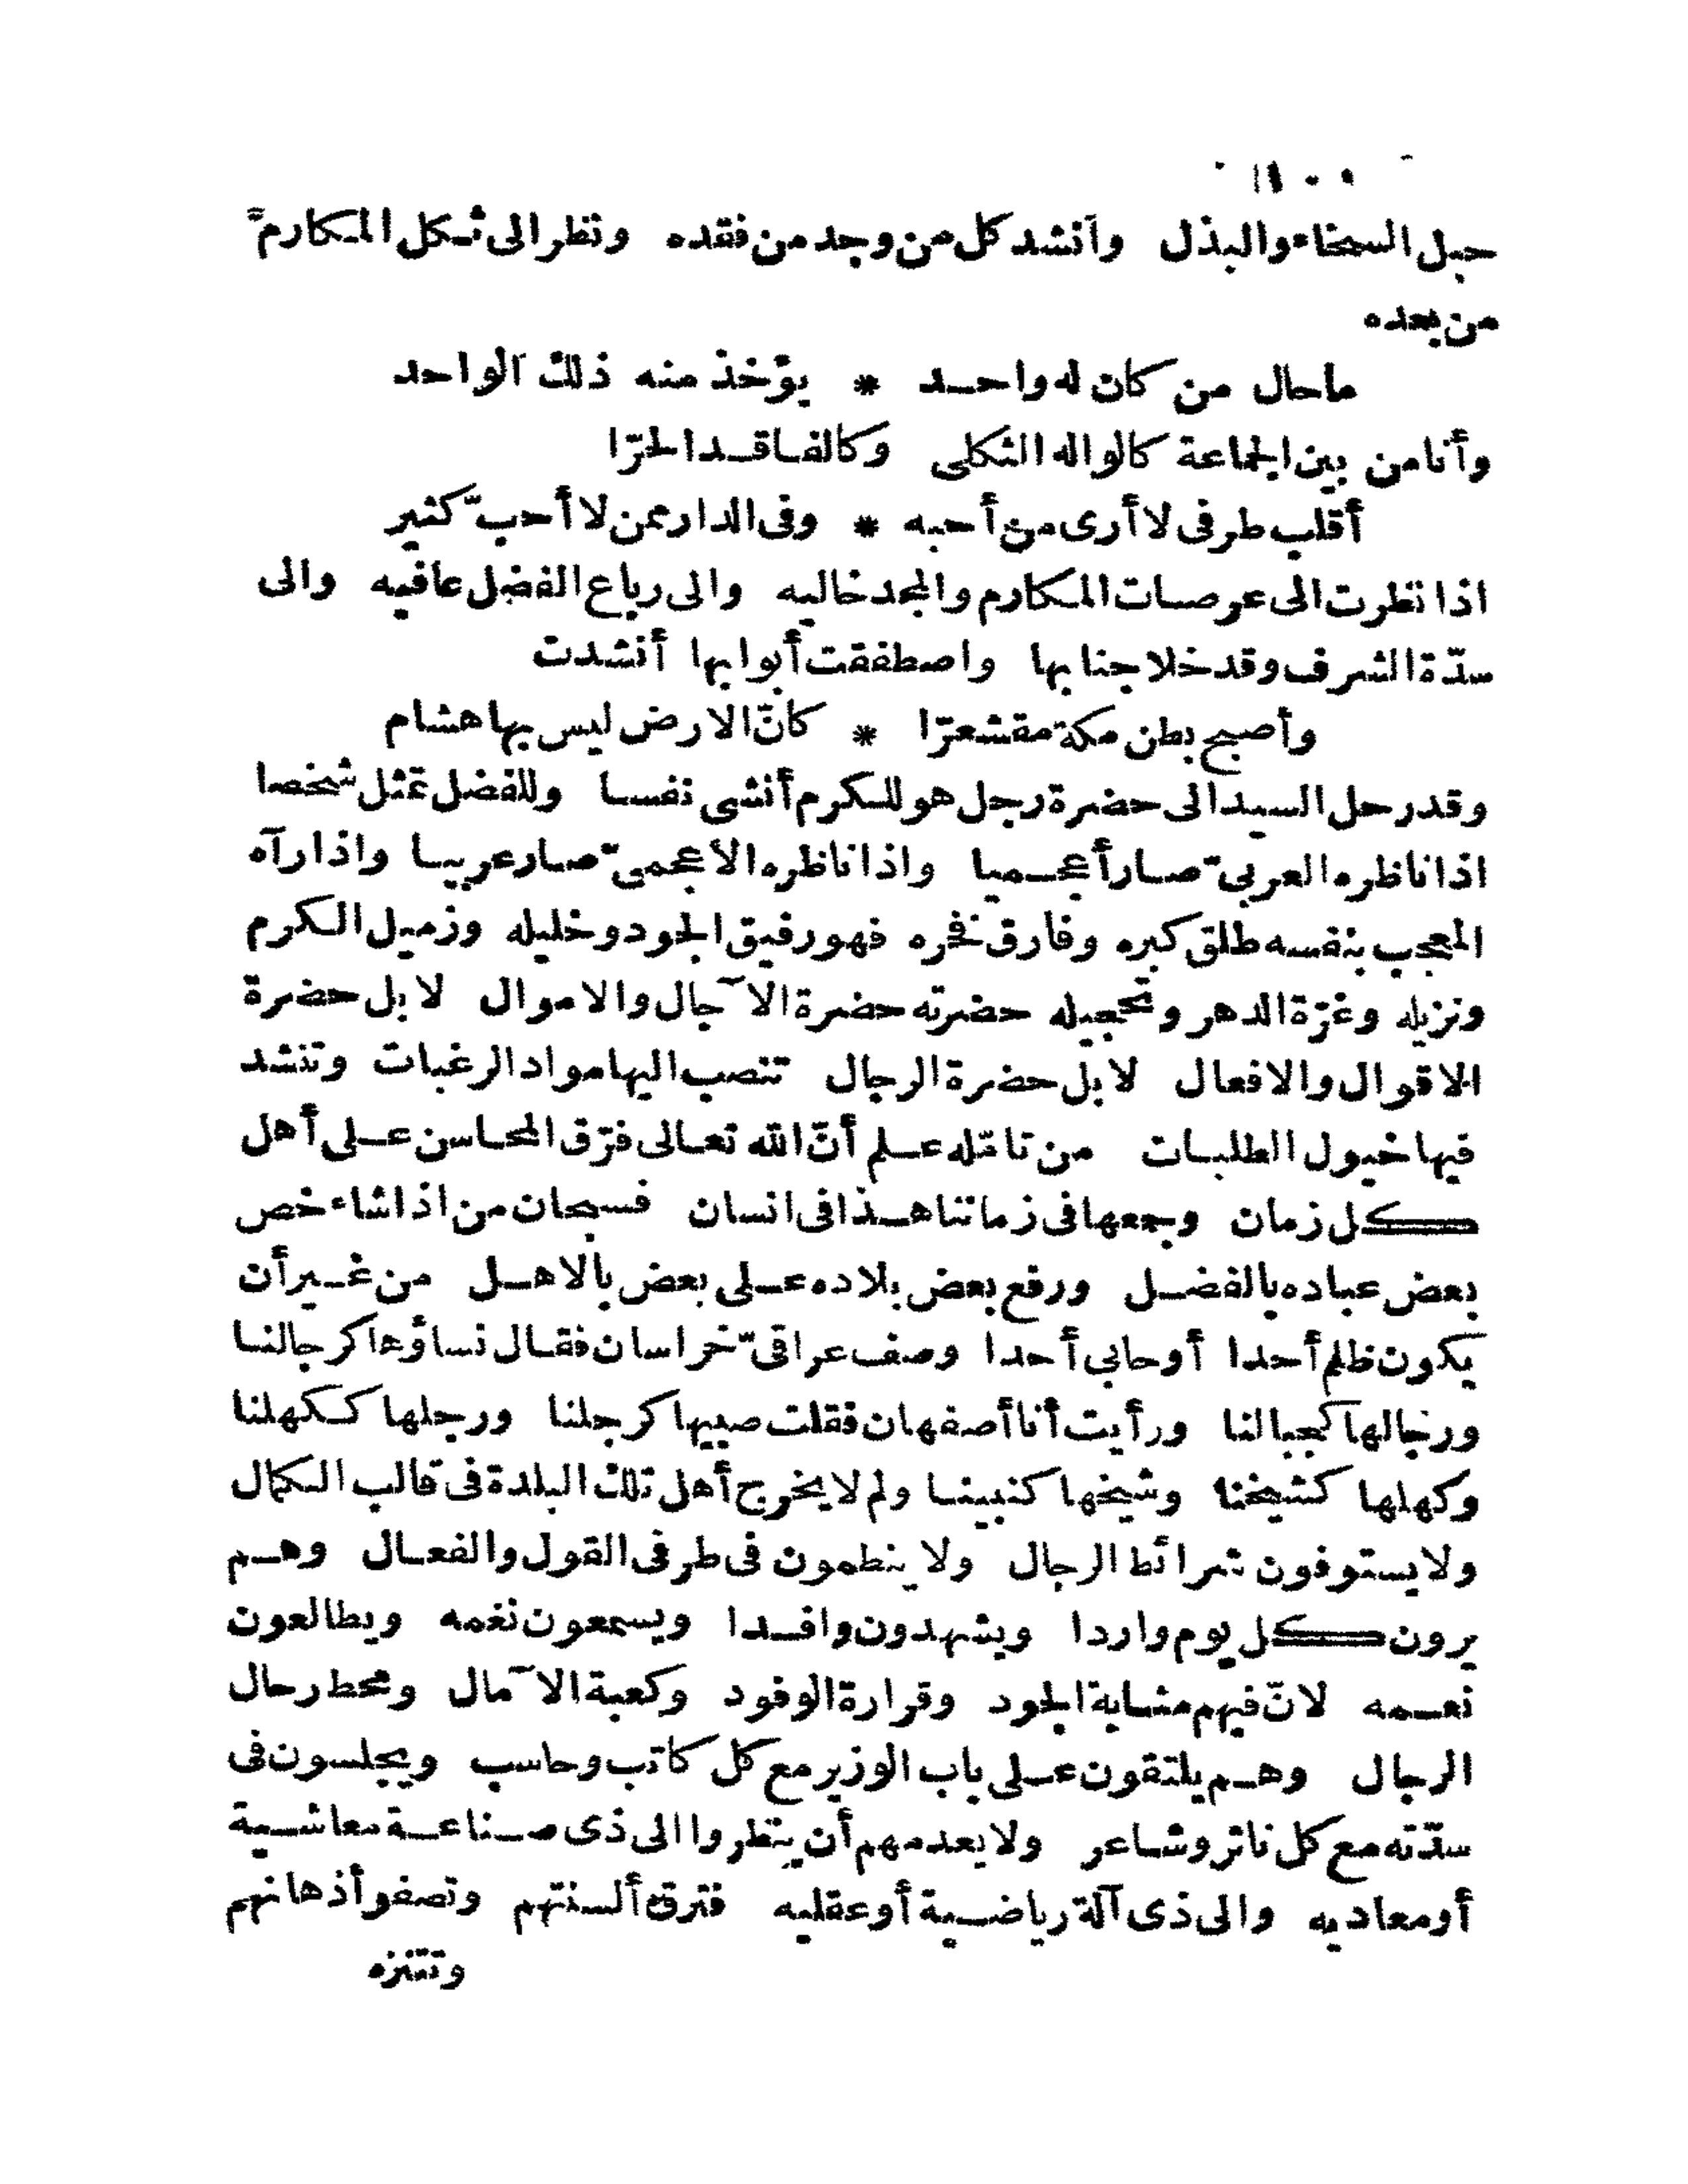 حبل السخاء والبذل وأنشد كل من وجد من فقده ونظر الى ثكل المكارم
من بعده
ما حال من كان له واحد * يؤخذ منه ذلك الواحد
وأنا من بين الجماعة كالواله الثكلى وكالفاقد الحرّا
أقلب طرفى لا أرى من أحبه * وفى الدار ممن لا أحبّ كثير
اذا نظرت الى عرصات المكارم والمجد خاليه والى رباع الفضل عافيه والى
سدّة الشرف وقد خلا جنابها واصطفقت أبوابها أنشدت
وأصبح بطن مكة مقشعرّا * كانّ الارض ليس بها هشام
وقد رحل السيد الى حضرة رجل هو للكرم أنشى نفسا وللفضل تمثل شخصا
اذا ناظره العربىّ صار أعجميا واذا ناظره الاعجمىّ صار عربيا واذا رآه
المعجب بنفسه طلق كبره وفارق فخره فهو رفيق الجود وخليله وزميل الكرم
ونزيله وغرّة الدهر وتحجيله حضرته حضرة الآجال والاموال لا بل حضرة
الاقوال والافعال لا بل حضرة الرجال تنصب اليها مواد الرغبات وتنشد
فيها خيول الطلبات من تامّله علم أنّ الله تعالى فرّق المحاسن على أهل
كل زمان وجمعها فى زماننا هذا فى انسان فسبحان من اذا شاء خص
بعض عباده بالفضل ورفع بعض بلاده على بعض بالاهل من غير أن
يكون ظلم أحدا أو حابى أحدا وصف عراقىّ خراسان فقال نساؤها كرجالنا
ورجالها كجبالنا ورأيت أنا أصفهان فقلت صبيها كرجلنا ورجلها ككهلنا
وكهلها كشيخنا وشيخها كنبينا ولم لا يخرج أهل تلك البلدة فى قالب الكمال
ولا يستوفون شرائط الرجال ولا ينظمون فى طرفى القول والفعال وهم
يرون كل يوم واردا ويشهدون وافدا ويسمعون نغمه ويطالعون
نعمه لانّ فيهم مثابة الجود وقرارة الوفود وكعبة الآمال ومحط رحال
الرجال وهم يلتقون على باب الوزير مع كل كاتب وحاسب ويجلسون فى
سدّته مع كل ناثر وشاعر ولا يعدمهم أن ينظروا الى ذى صناعة معاشية
أو معاديه والى ذى آلة رياضية أو عقليه فترق ألسنتهم وتصفو أذهانهم
وتتنزه